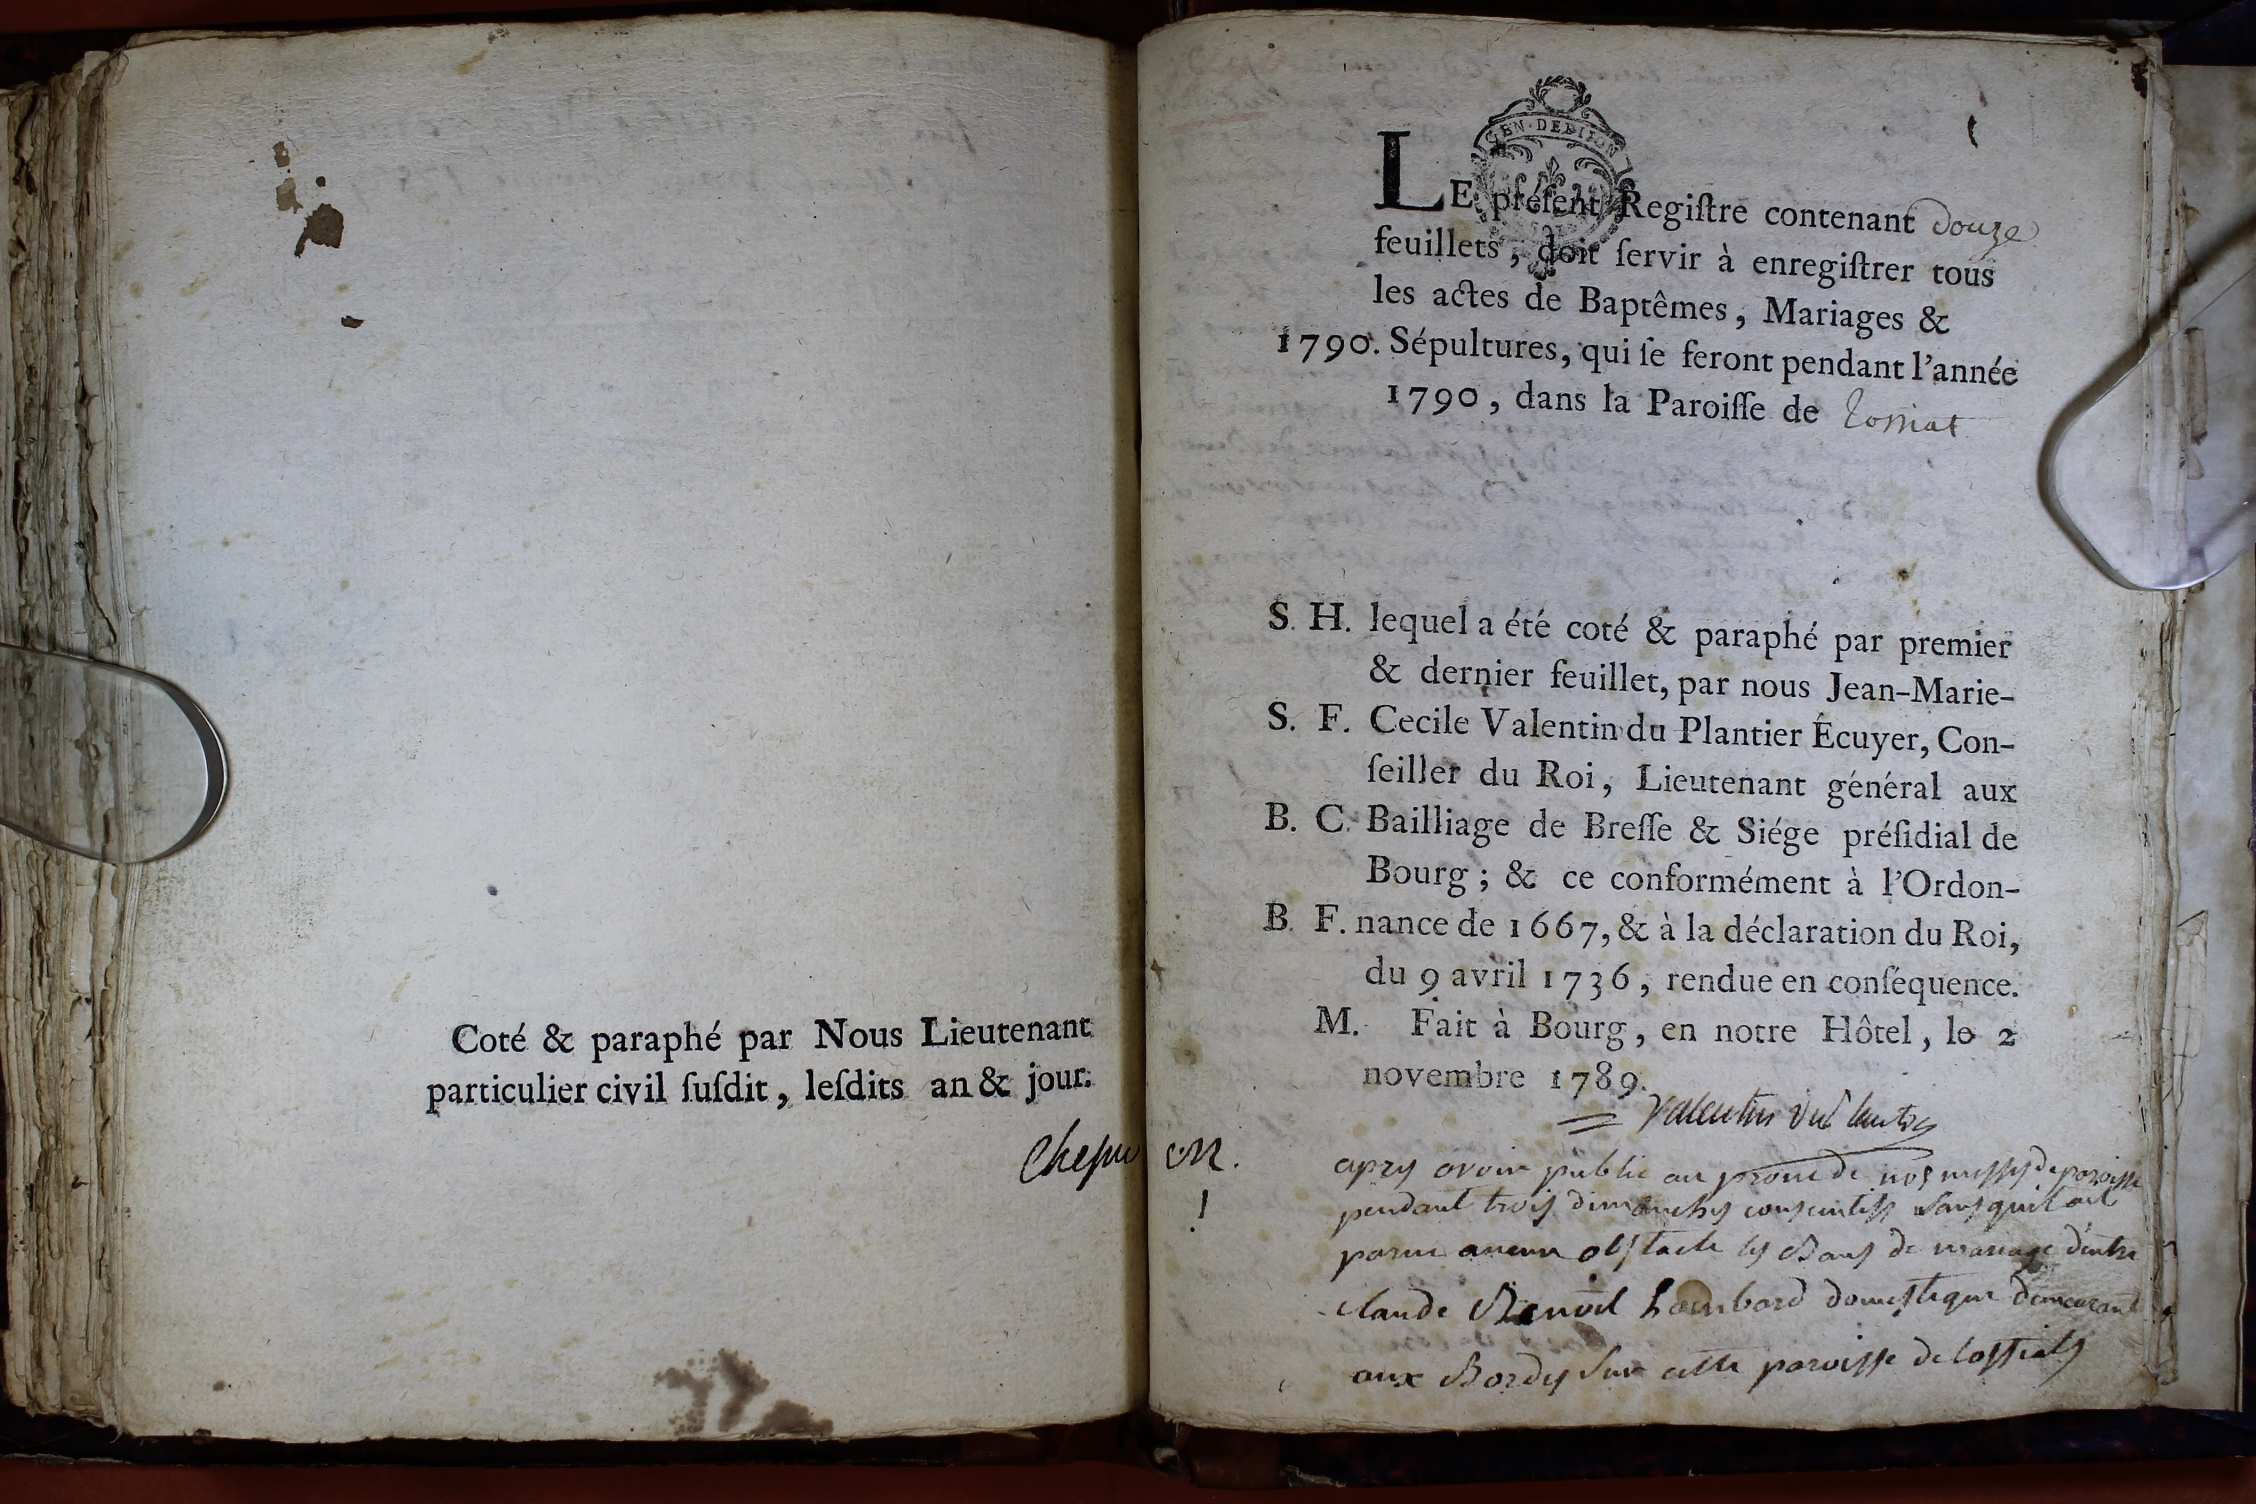 Coté & paraphé par Nous Lieutenant
particulier civil ſuſdit, leſdits an & jour.
1
GEN·DE DIJON
LE préſent Regiſtre contenant douze
feuillets, doit ſervir à enregiſtrer tous
les actes de Baptêmes, Mariages &
1790. Sépultures, qui ſe feront pendant l'année
1790, dans la Paroiſſe de
S. H. lequel a été coté & paraphé par premier
& dernier feuillet, par nous Jean-Marie-
S. F. Cecile Valentin du Plantier Écuyer, Con-
ſeiller du Roi, Lieutenant général aux
B. C. Bailliage de Breſſe & Siége préſidial de
Bourg; & ce conformément à l'Ordon-
B. F. nance de 1667, & à la déclaration du Roi,
du 9 avril 1736, rendue en conſéquence.
M. Fait à Bourg, en notre Hôtel, le 2
novembre 1789.
Valentin
M. apry avoir publié au prone de nos messes de paroisse
1 pendant trois dimanches sans quil ait
parue aucun obstacle les Bans de mariage dentre
claude Benoit Lombard domestique demeurant
aux Bordes sur cette paroisse de